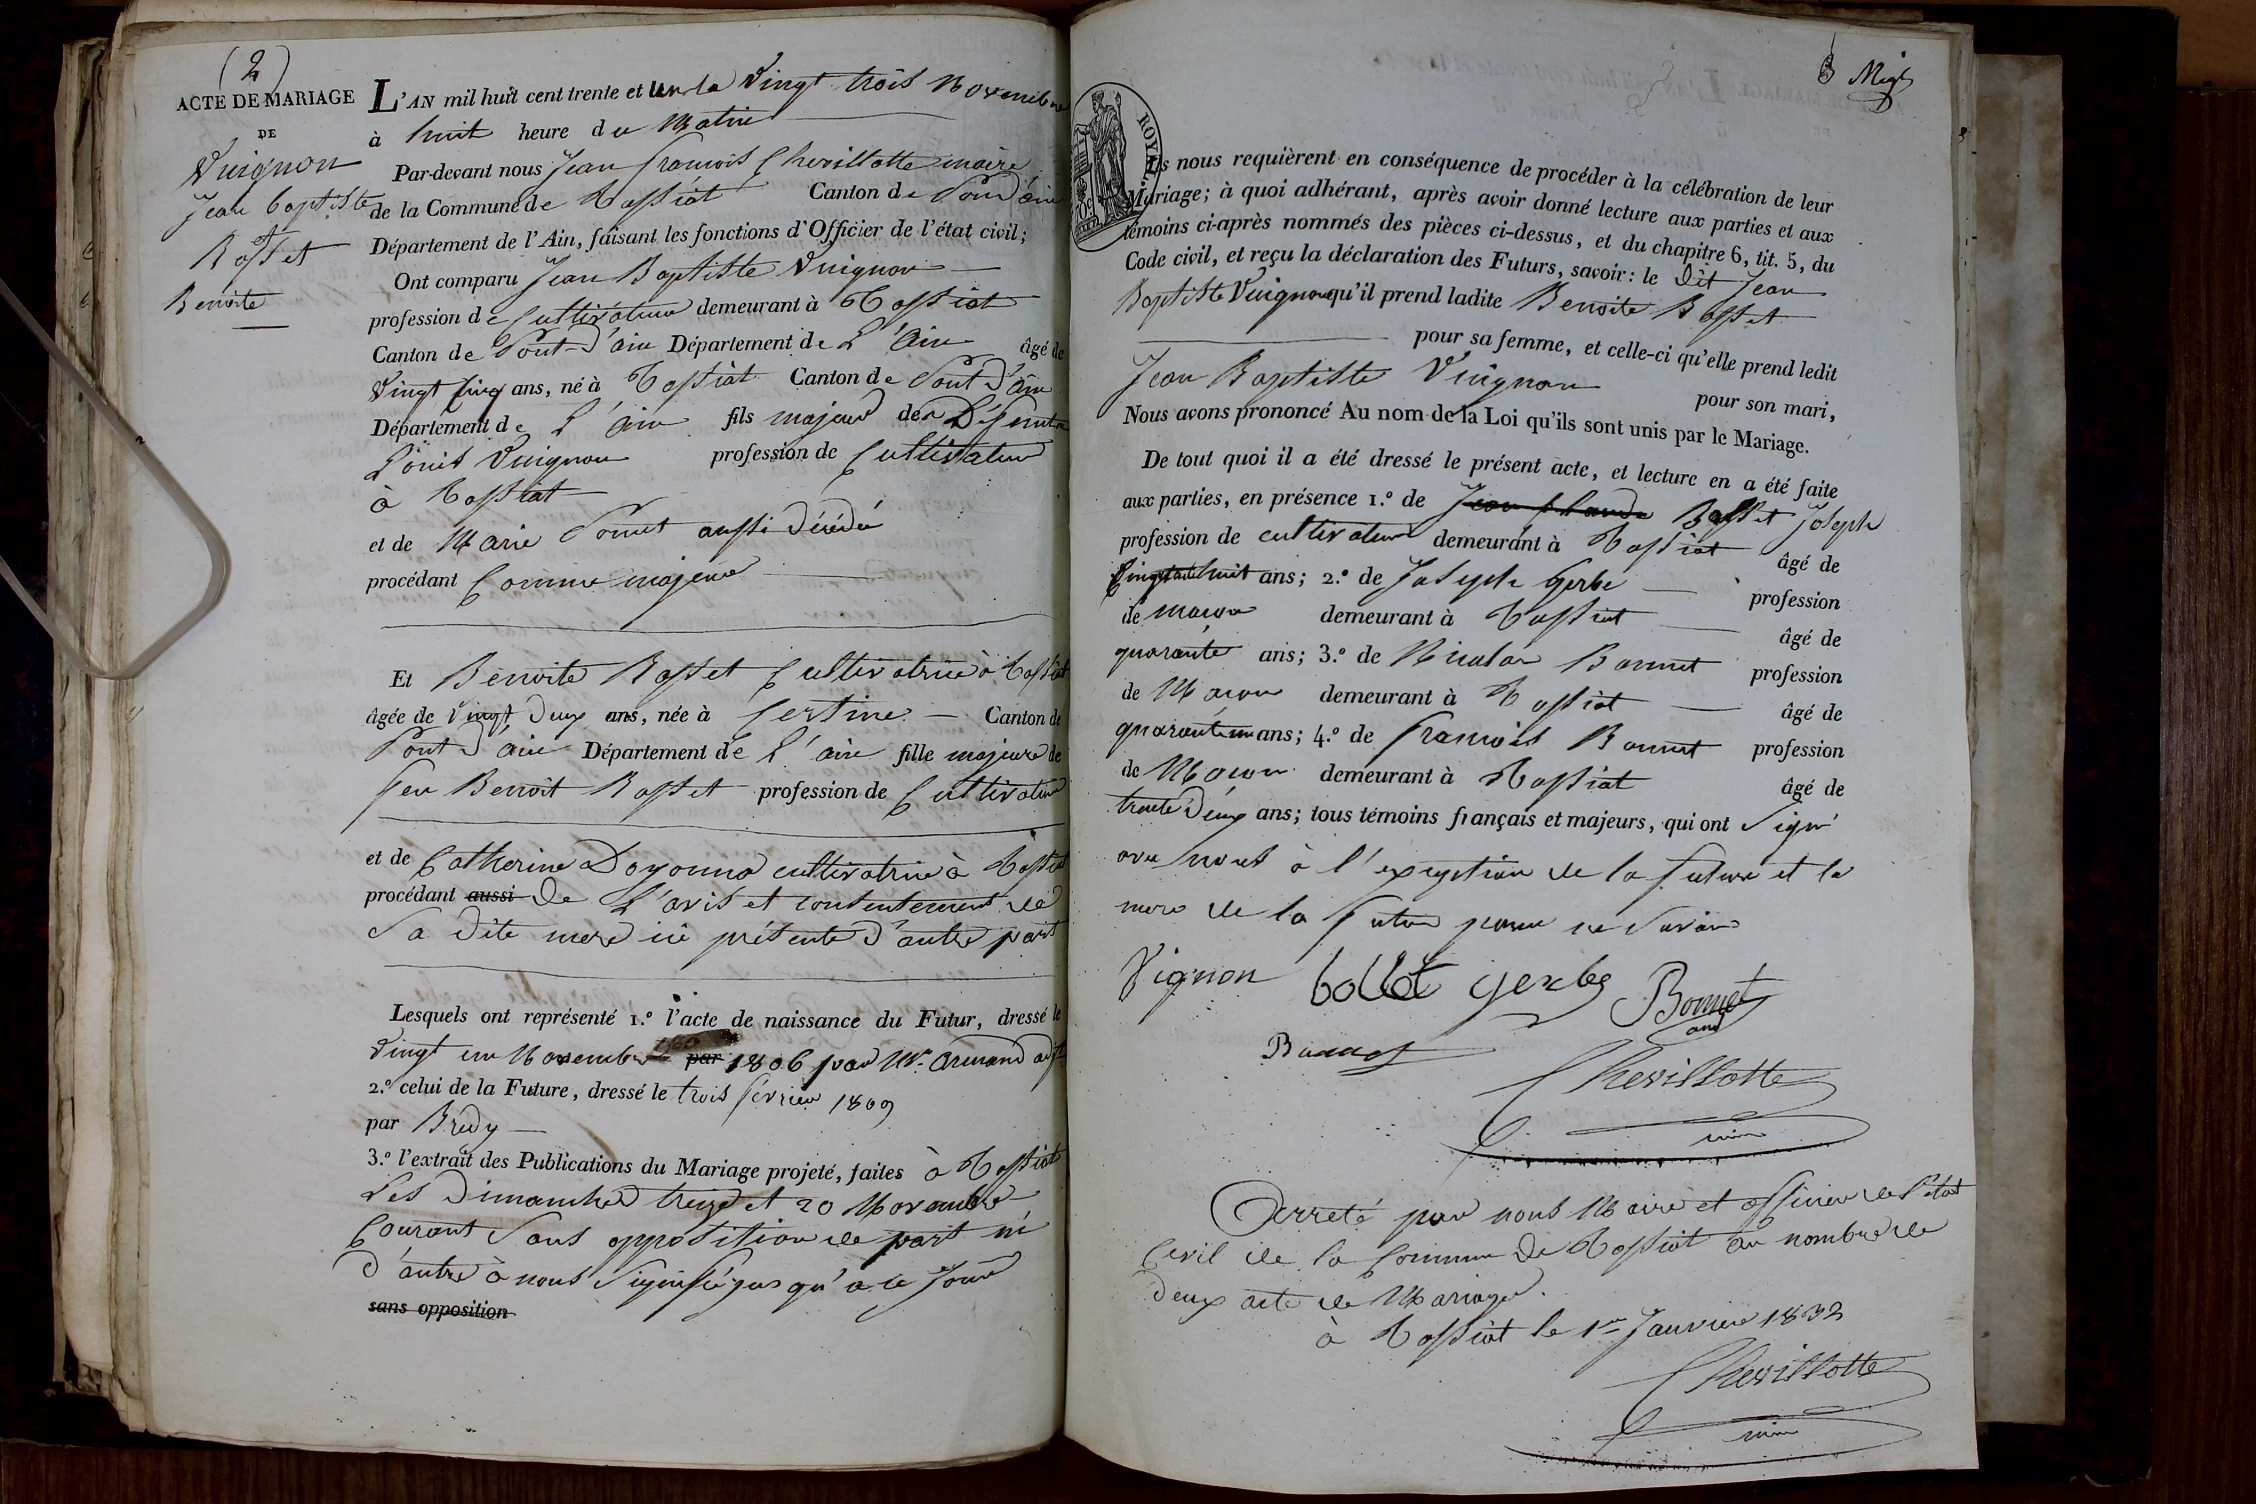 (2)
ACTE DE MARIAGE
DE
Vuignon
Jean baptiste
Rosset
Benoite
L'AN mil huit cent trente et un le Vingt trois Novembre
à huit heure du Matin
Par-devant nous Jean francois Chevillotte maire
de la Commune de Tossiat Canton de Pont d'ain
Département de l'Ain, faisant les fonctions d'Officier de l'état civil;
Ont comparu Jean Baptiste Vuignon
profession de Cultivateur demeurant à Tossiat
Canton de Pont d'ain Département de L'Ain âgé de
Vingt Cinq ans, né à Tossiat Canton de Pont d'ain
Département de L'ain fils majeur des Défunts
Louis Vuignon profession de Cultivateur
à Tossiat
et de Marie Ponet aussi décédée
procédant Comme majeur
Et Benoite Rosset Cultivatrice à Tossiat
âgée de Vingt Deux ans, née à Certine Canton de
Pont d'ain Département de L'ain fille majeure de
feu Benoit Rosset profession de Cultivateur
et de Catherine Doyonna cultivatrice à Tossiat
procédant aussi de L'avis et consentement de
Sa dite mere ici présente d'autre part
Lesquels ont représenté 1.º l'acte de naissance du Futur, dressé le
Vingt un Novembre par 1806 par Mr. Armand adjt
2.º celui de la Future, dressé le trois février 1809
par Bredy
3.º l'extrait des Publications du Mariage projeté, faites à Tossiat
Les Dimanches treize et 20 Novembre
Courant Sans opposition de part ni
d'autre à nous Signifié jusqu'a ce Jour
sans opposition
3 Migt
ROYAL
Ils nous requièrent en conséquence de procéder à la célébration de leur
Mariage; à quoi adhérant, après avoir donné lecture aux parties et aux
témoins ci-après nommés des pièces ci-dessus, et du chapitre 6, tit. 5, du
Code civil, et reçu la déclaration des Futurs, savoir: le dit Jean
Baptiste Vuignon qu'il prend ladite Benoite Rosset
pour sa femme, et celle-ci qu'elle prend ledit
Jean Baptiste Vuignon pour son mari,
Nous avons prononcé Au nom de la Loi qu'ils sont unis par le Mariage.
De tout quoi il a été dressé le présent acte, et lecture en a été faite
aux parties, en présence 1.º de Jean Claude Joseph
profession de cultivateur demeurant à Tossiat âgé de
ans; 2.º de Joseph Gerbe profession
de macon demeurant à Tossiat âgé de
quarante ans; 3.º de Nicolas Bonnet profession
de Macon demeurant à Tossiat âgé de
quarante un ans; 4.º de francois Bonnet profession
de Macon demeurant à Tossiat âgé de
trente Deux ans; tous témoins français et majeurs, qui ont Signé
avec nous à l'exception de la future et la
mere de la future pour ne Savoir
Vignon bollet gerbe Bonnet
Bonnet
Chevillotte
Arreté par nous Maire et officier de l'état
Civil de la Commune de Tossiat au nombre de
Deux acte de Mariage.
à Tossiat le 1er Janvier 1832
Chevillotte